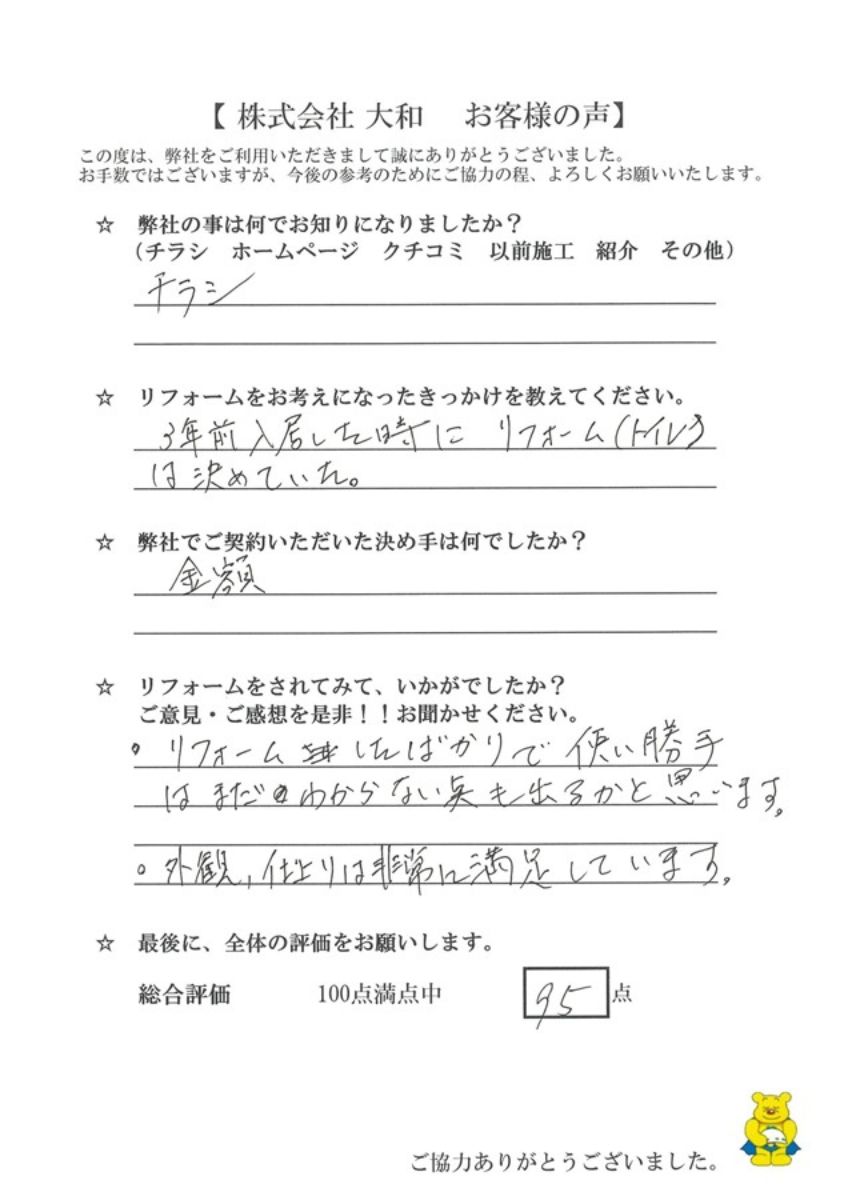 【 株式会社 大和　お客様の声】
この度は、弊社をご利用いただきまして誠にありがとうございました。
お手数ではございますが、今後の参考のためにご協力の程、よろしくお願いいたします。
☆ 弊社の事は何でお知りになりましたか？
（チラシ　ホームページ　クチコミ　以前施工　紹介　その他）
チラシ
☆ リフォームをお考えになったきっかけを教えてください。
3年前入居した時に リフォーム(トイレ)
は決めていた。
☆ 弊社でご契約いただいた決め手は何でしたか？
金額
☆ リフォームをされてみて、いかがでしたか？
ご意見・ご感想を是非！！お聞かせください。
。リフォーム したばかりで 使い勝手
は まだ わからない点も出るかと思います。
。外観,仕上りは非常に満足しています。
☆ 最後に、全体の評価をお願いします。
総合評価　100点満点中　95 点
ご協力ありがとうございました。